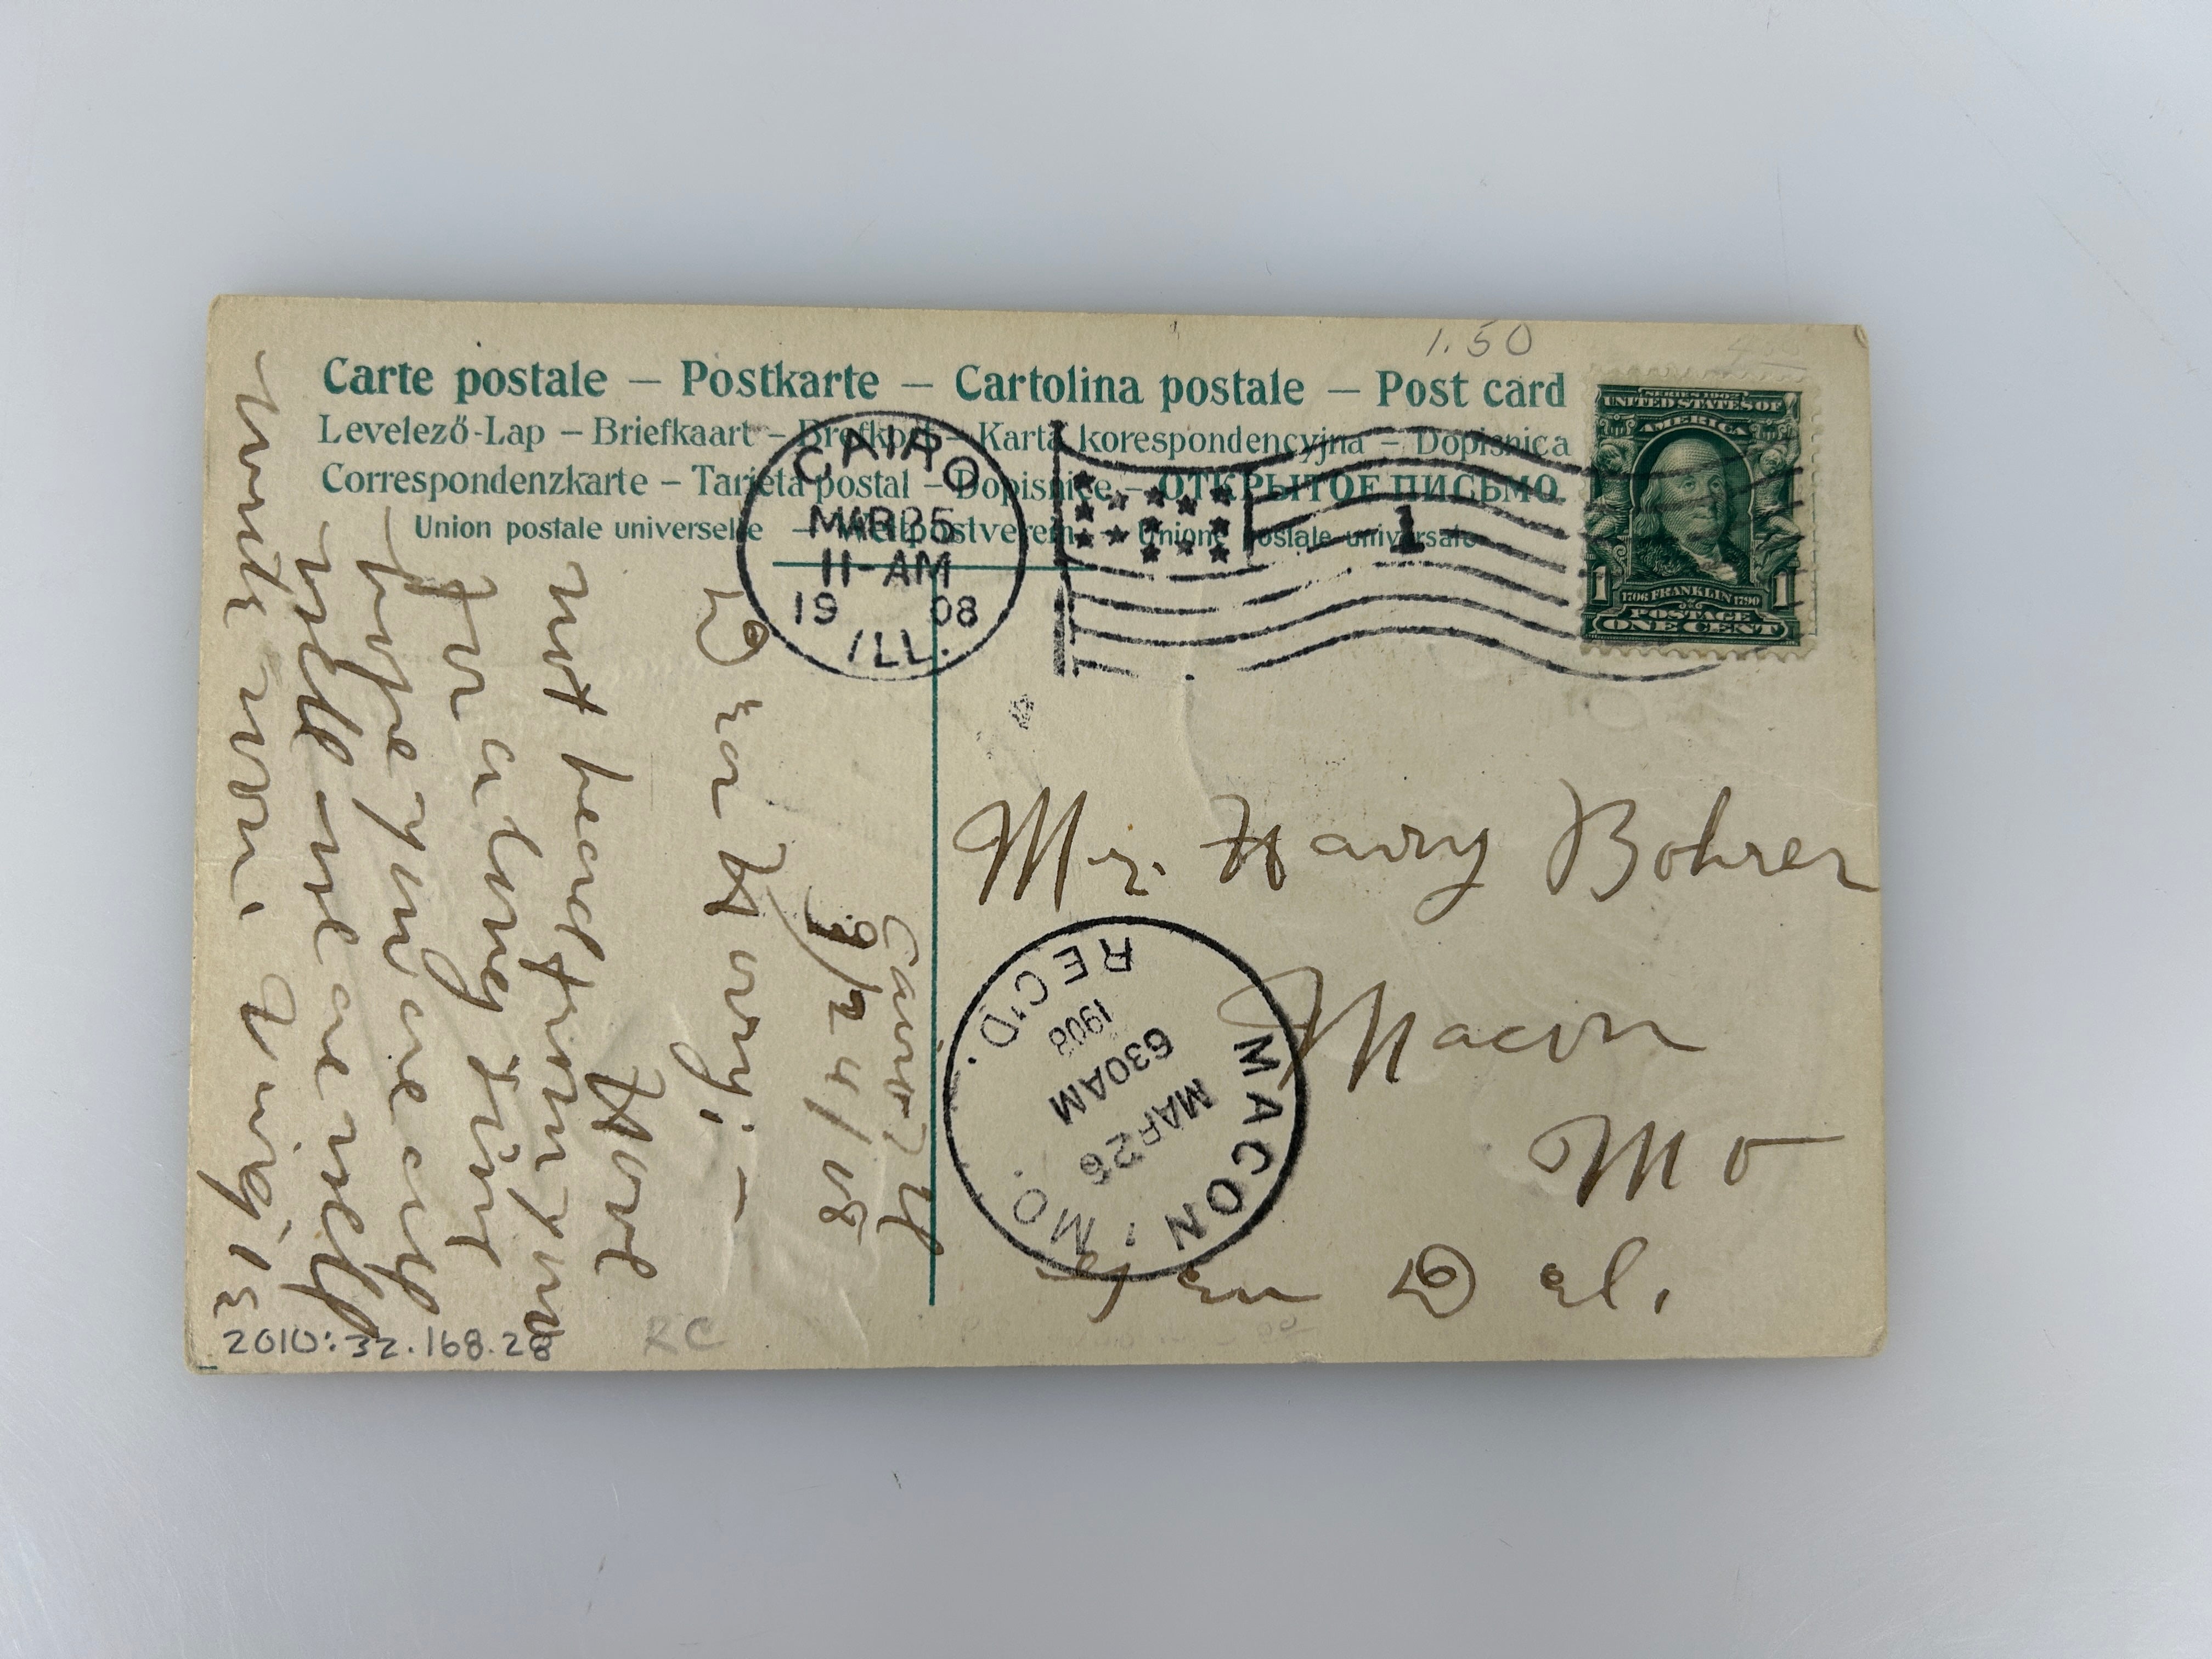 1.50
Carte postale – Postkarte – Cartolina postale – Post card
Levelező-Lap – Briefkaart – Brefkort – Karta korespondencyjna – Dopisnica
Correspondenzkarte – Tarjeta postal – Dopisnice – ОТКРЫТОЕ ПИСЬМО
Union postale universelle – Weltpostverein – Unione postale universale
CAIRO
MAR 25
11-AM
19 08
ILL.
1
SERIES 1902
UNITED STATES OF
AMERICA
1706 FRANKLIN 1790
1 1
POSTAGE
ONE CENT
Cairo Ill
3/24/08
Dear Harry:–
Have
not heard from you
for a long time
hope you are all
well we are well
write soon.
Mr. Harry Bohrer
Macon
Mo
Gen Del.
MACON, MO.
MAR 26
630AM
1908
REC'D.
2010:32.168.28
RC